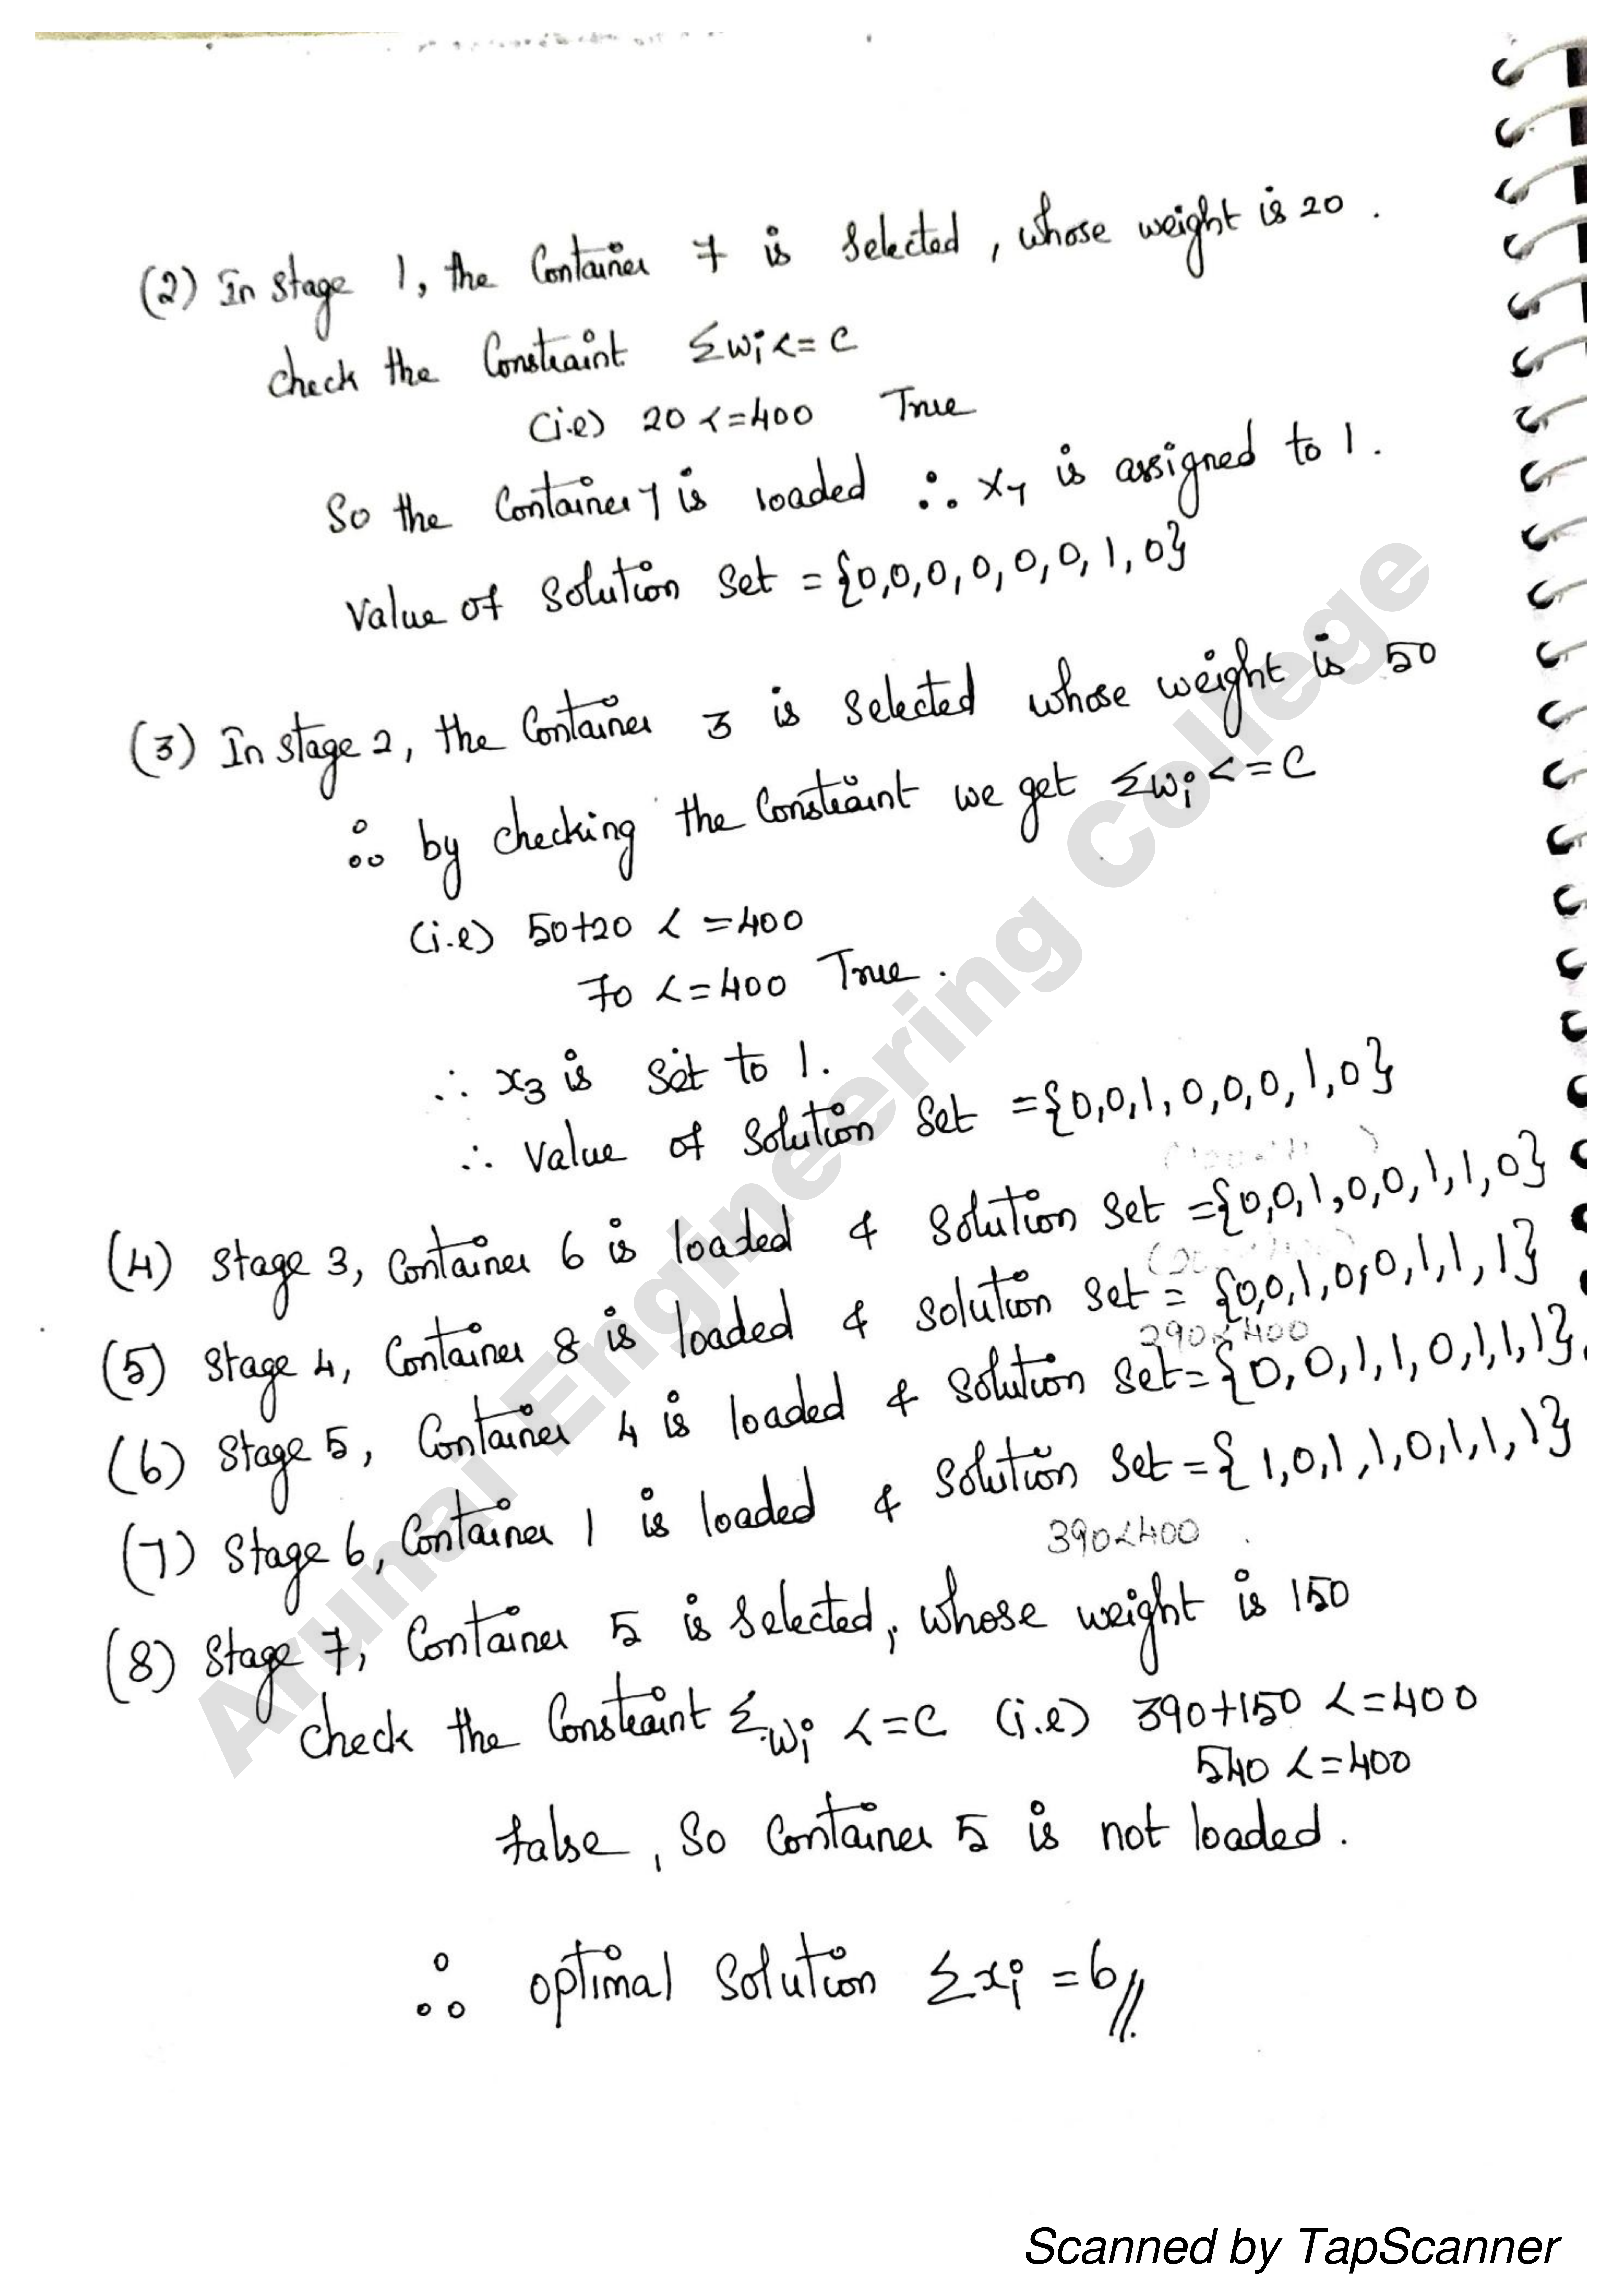 (2) In stage 1, the Container 7 is selected, whose weight is 20.
check the Constraint Σwi <= C
(i.e) 20 <= 400 True
So the Container 7 is loaded ∴ x7 is assigned to 1.
Value of solution set = {0,0,0,0,0,0,1,0}
(3) In stage 2, the Container 3 is selected whose weight is 50
∴ by checking the Constraint we get Σwi <= C
(i.e) 50+20 <= 400
70 <= 400 True.
∴ x3 is set to 1.
∴ Value of solution set = {0,0,1,0,0,0,1,0}
(4) Stage 3, Container 6 is loaded & solution set = {0,0,1,0,0,1,1,0}
(5) Stage 4, Container 8 is loaded & solution set = {0,0,1,0,0,1,1,1}
290<400
(6) Stage 5, Container 4 is loaded & solution set = {0,0,1,1,0,1,1,1}.
(7) Stage 6, Container 1 is loaded & solution set = {1,0,1,1,0,1,1,1}
390<400
(8) Stage 7, Container 5 is selected, whose weight is 150
check the Constraint Σwi <= C (i.e) 390+150 <= 400
540 <= 400
false, So Container 5 is not loaded.
∴ optimal solution Σxi = 6//
Arunai Engineering College
Scanned by TapScanner